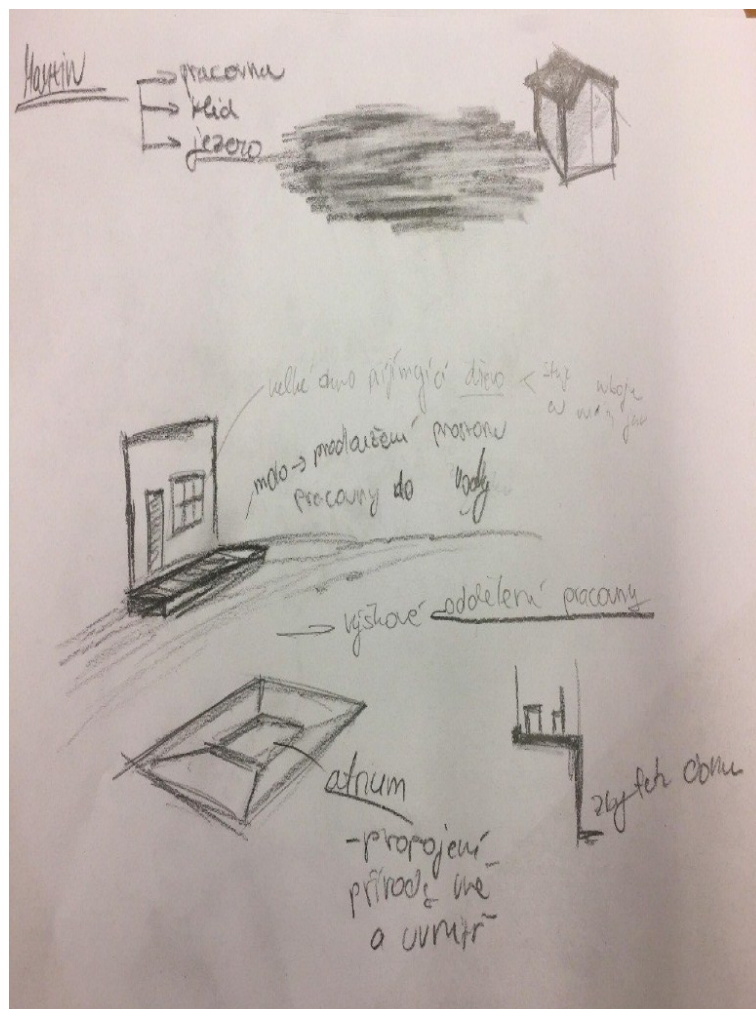 Martin
pracovna
klid
jezero
velké okno
molo → prodloužení prostoru
pracovny do vody
→ výškové oddělení pracovny
atrium
- propojení
přírody
a uvnitř
zbytek domu